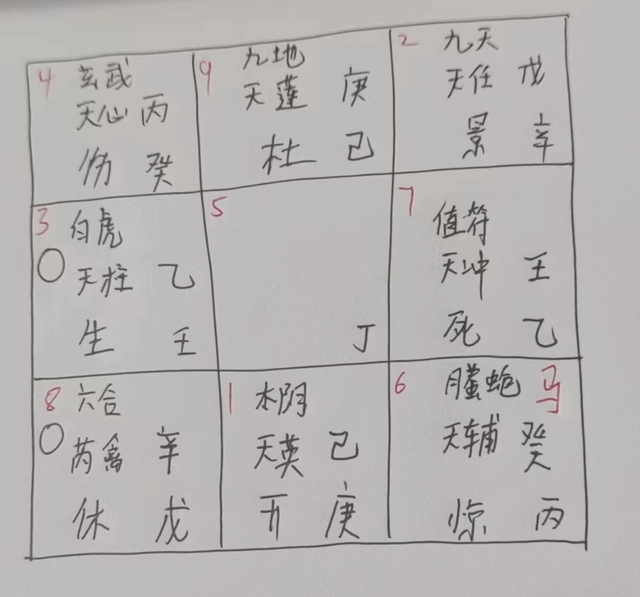 4 玄武
天心 丙
伤 癸
9 九地
天蓬 庚
杜 己
2 九天
天任 戊
景 辛
3 白虎
○ 天柱 乙
生 壬
5
丁
7 值符
天冲 壬
死 乙
8 六合
○ 芮禽 辛
休 戊
1 太阴
天英 己
开 庚
6 螣蛇 马
天辅 癸
惊 丙